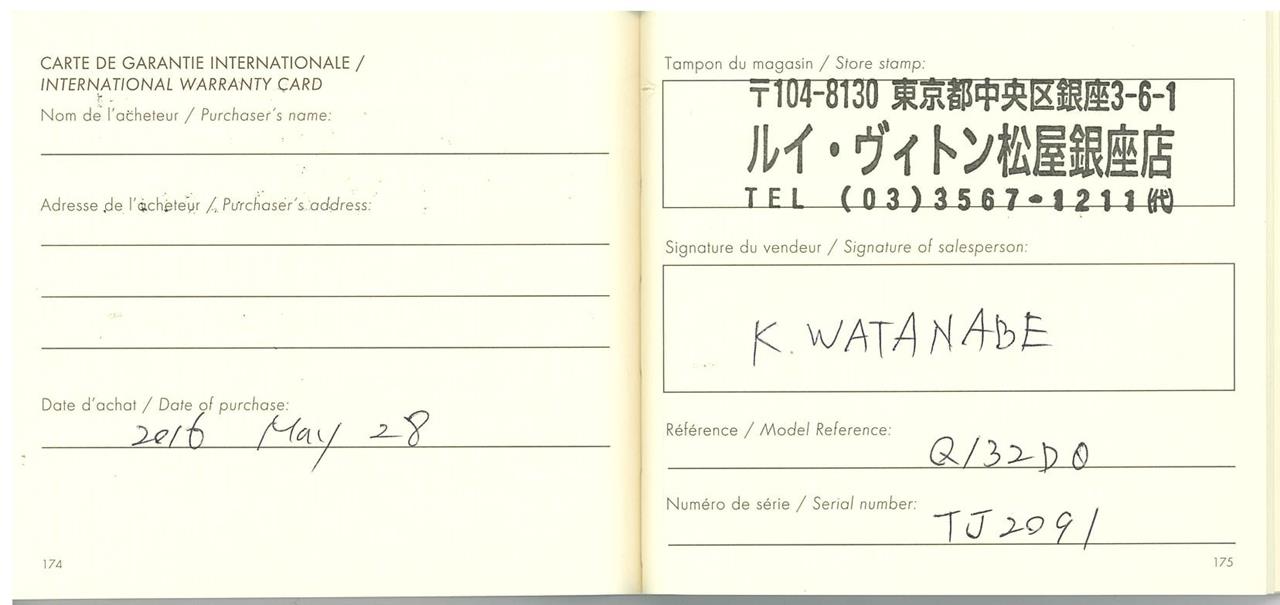 CARTE DE GARANTIE INTERNATIONALE /
INTERNATIONAL WARRANTY CARD
Nom de l'acheteur / Purchaser's name:
Adresse de l'acheteur / Purchaser's address:
Date d'achat / Date of purchase:
2016 May 28
174
Tampon du magasin / Store stamp:
〒104-8130 東京都中央区銀座3-6-1
ルイ・ヴィトン松屋銀座店
TEL (03)3567-1211(代)
Signature du vendeur / Signature of salesperson:
K. WATANABE
Référence / Model Reference:
Q132D0
Numéro de série / Serial number:
TJ2091
175